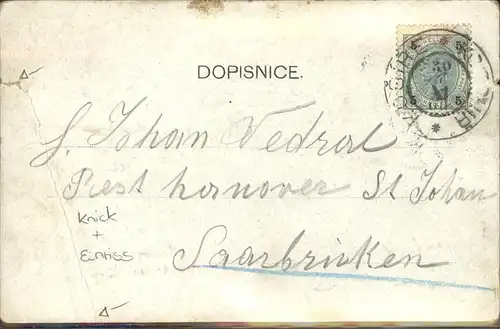 DOPISNICE.
J. Johan Vedral
Rest hanover St Johan
Saarbrüken
Knick
+
Einriss
5 5
5 5